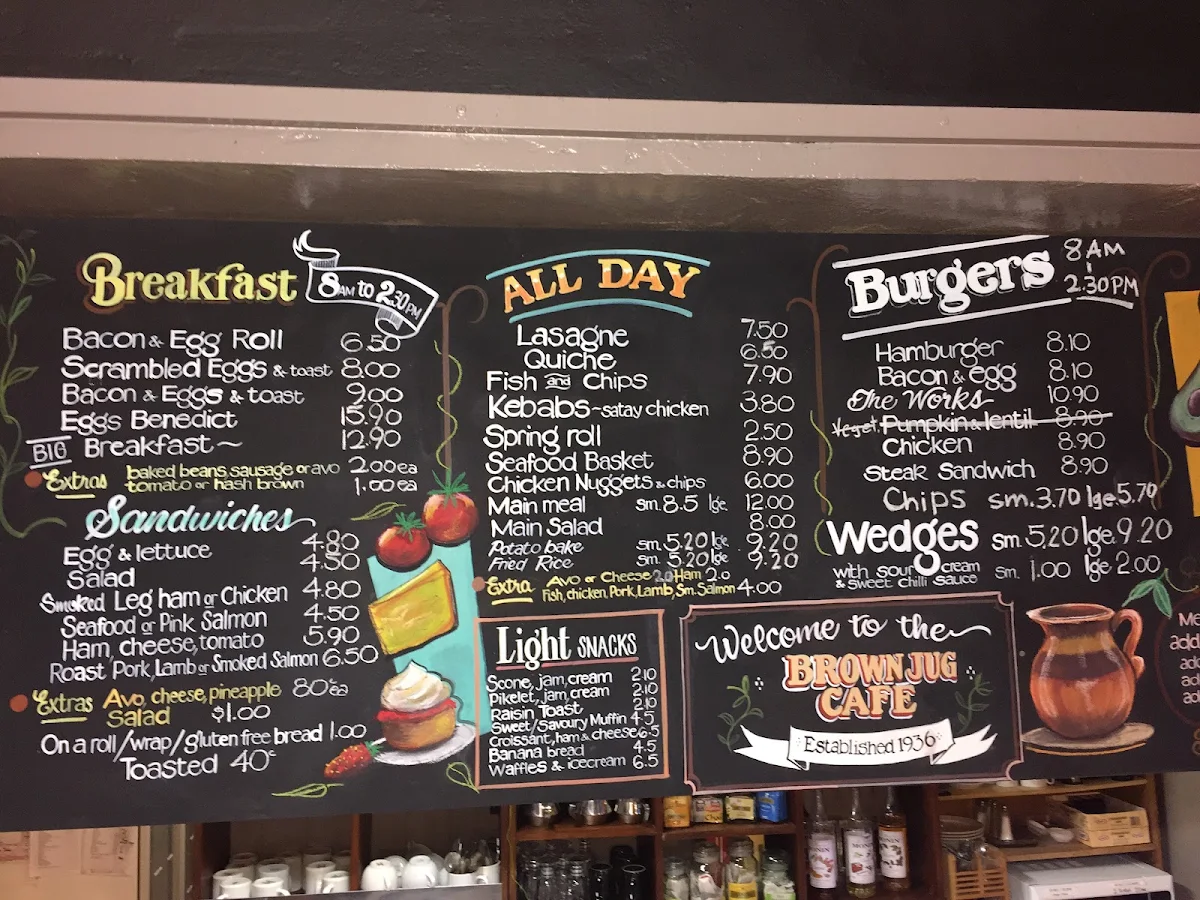 Breakfast 8AM to 2.30PM
Bacon & Egg Roll 6.50
Scrambled Eggs & toast 8.00
Bacon & Eggs & toast 9.00
Eggs Benedict 15.90
BIG Breakfast~ 12.90
Extras baked beans, sausage or avo 2.00ea
tomato or hash brown 1.00ea
Sandwiches
Egg & lettuce 4.80
Salad 4.50
Smoked Leg ham or Chicken 4.80
Seafood or Pink Salmon 4.50
Ham, cheese, tomato 5.90
Roast Pork, Lamb or Smoked Salmon 6.50
Extras Avo, cheese, pineapple 80¢ea
Salad $1.00
On a roll/wrap/gluten free bread 1.00
Toasted 40¢
ALL DAY
Lasagne 7.50
Quiche 6.50
Fish and Chips 7.90
Kebabs~satay chicken 3.80
Spring roll 2.50
Seafood Basket 8.90
Chicken Nuggets & chips 6.00
Main meal sm. 8.5 lge. 12.00
Main Salad 8.00
Potato bake sm. 5.20 lge. 9.20
Fried Rice sm. 5.20 lge. 9.20
Extra Avo or Cheese 2.0 Ham 2.0
Fish, chicken, Pork, Lamb, Sm. Salmon 4.00
Light SNACKS
Scone, jam, cream 2.10
Pikelet, jam, cream 2.10
Raisin Toast 2.10
Sweet/Savoury Muffin 4.5
Croissant, ham & cheese 6.5
Banana bread 4.5
Waffles & icecream 6.5
Burgers 8AM
2.30PM
Hamburger 8.10
Bacon & egg 8.10
The Works 10.90
Veget. Pumpkin & lentil 8.90
Chicken 8.90
Steak Sandwich 8.90
Chips sm. 3.70 lge. 5.70
Wedges sm. 5.20 lge. 9.20
with sour cream
& sweet chilli sauce sm. 1.00 lge 2.00
Welcome to the
BROWN JUG
CAFE
Established 1936